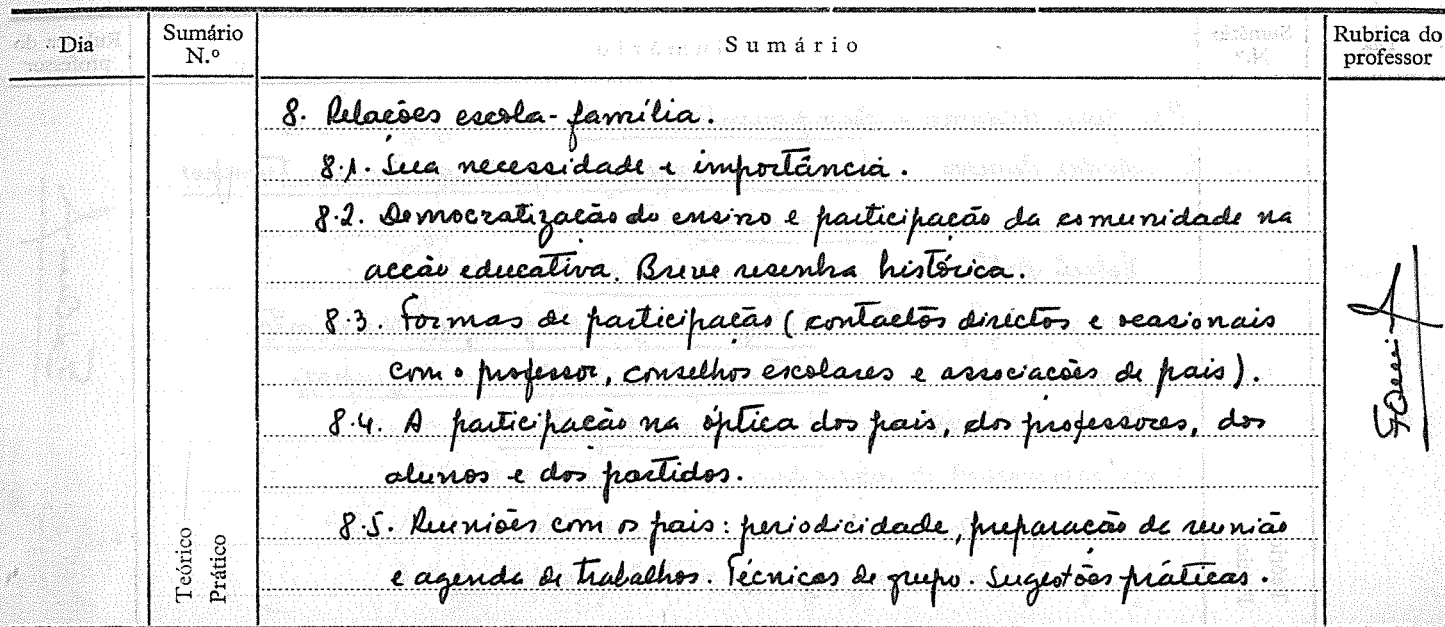 Dia
Sumário N.º
Sumário
Rubrica do professor
8. Relações escola-família.
8.1. Sua necessidade e importância.
8.2. Democratização do ensino e participação da comunidade na
acção educativa. Breve resenha histórica.
8.3. Formas de participação (contactos directos e ocasionais
com o professor, conselhos escolares e associações de pais).
8.4. A participação na óptica dos pais, dos professores, dos
alunos e dos partidos.
8.5. Reuniões com os pais: periodicidade, preparação da reunião
e agenda de trabalhos. Técnicas de grupo. Sugestões práticas.
Teórico
Prático